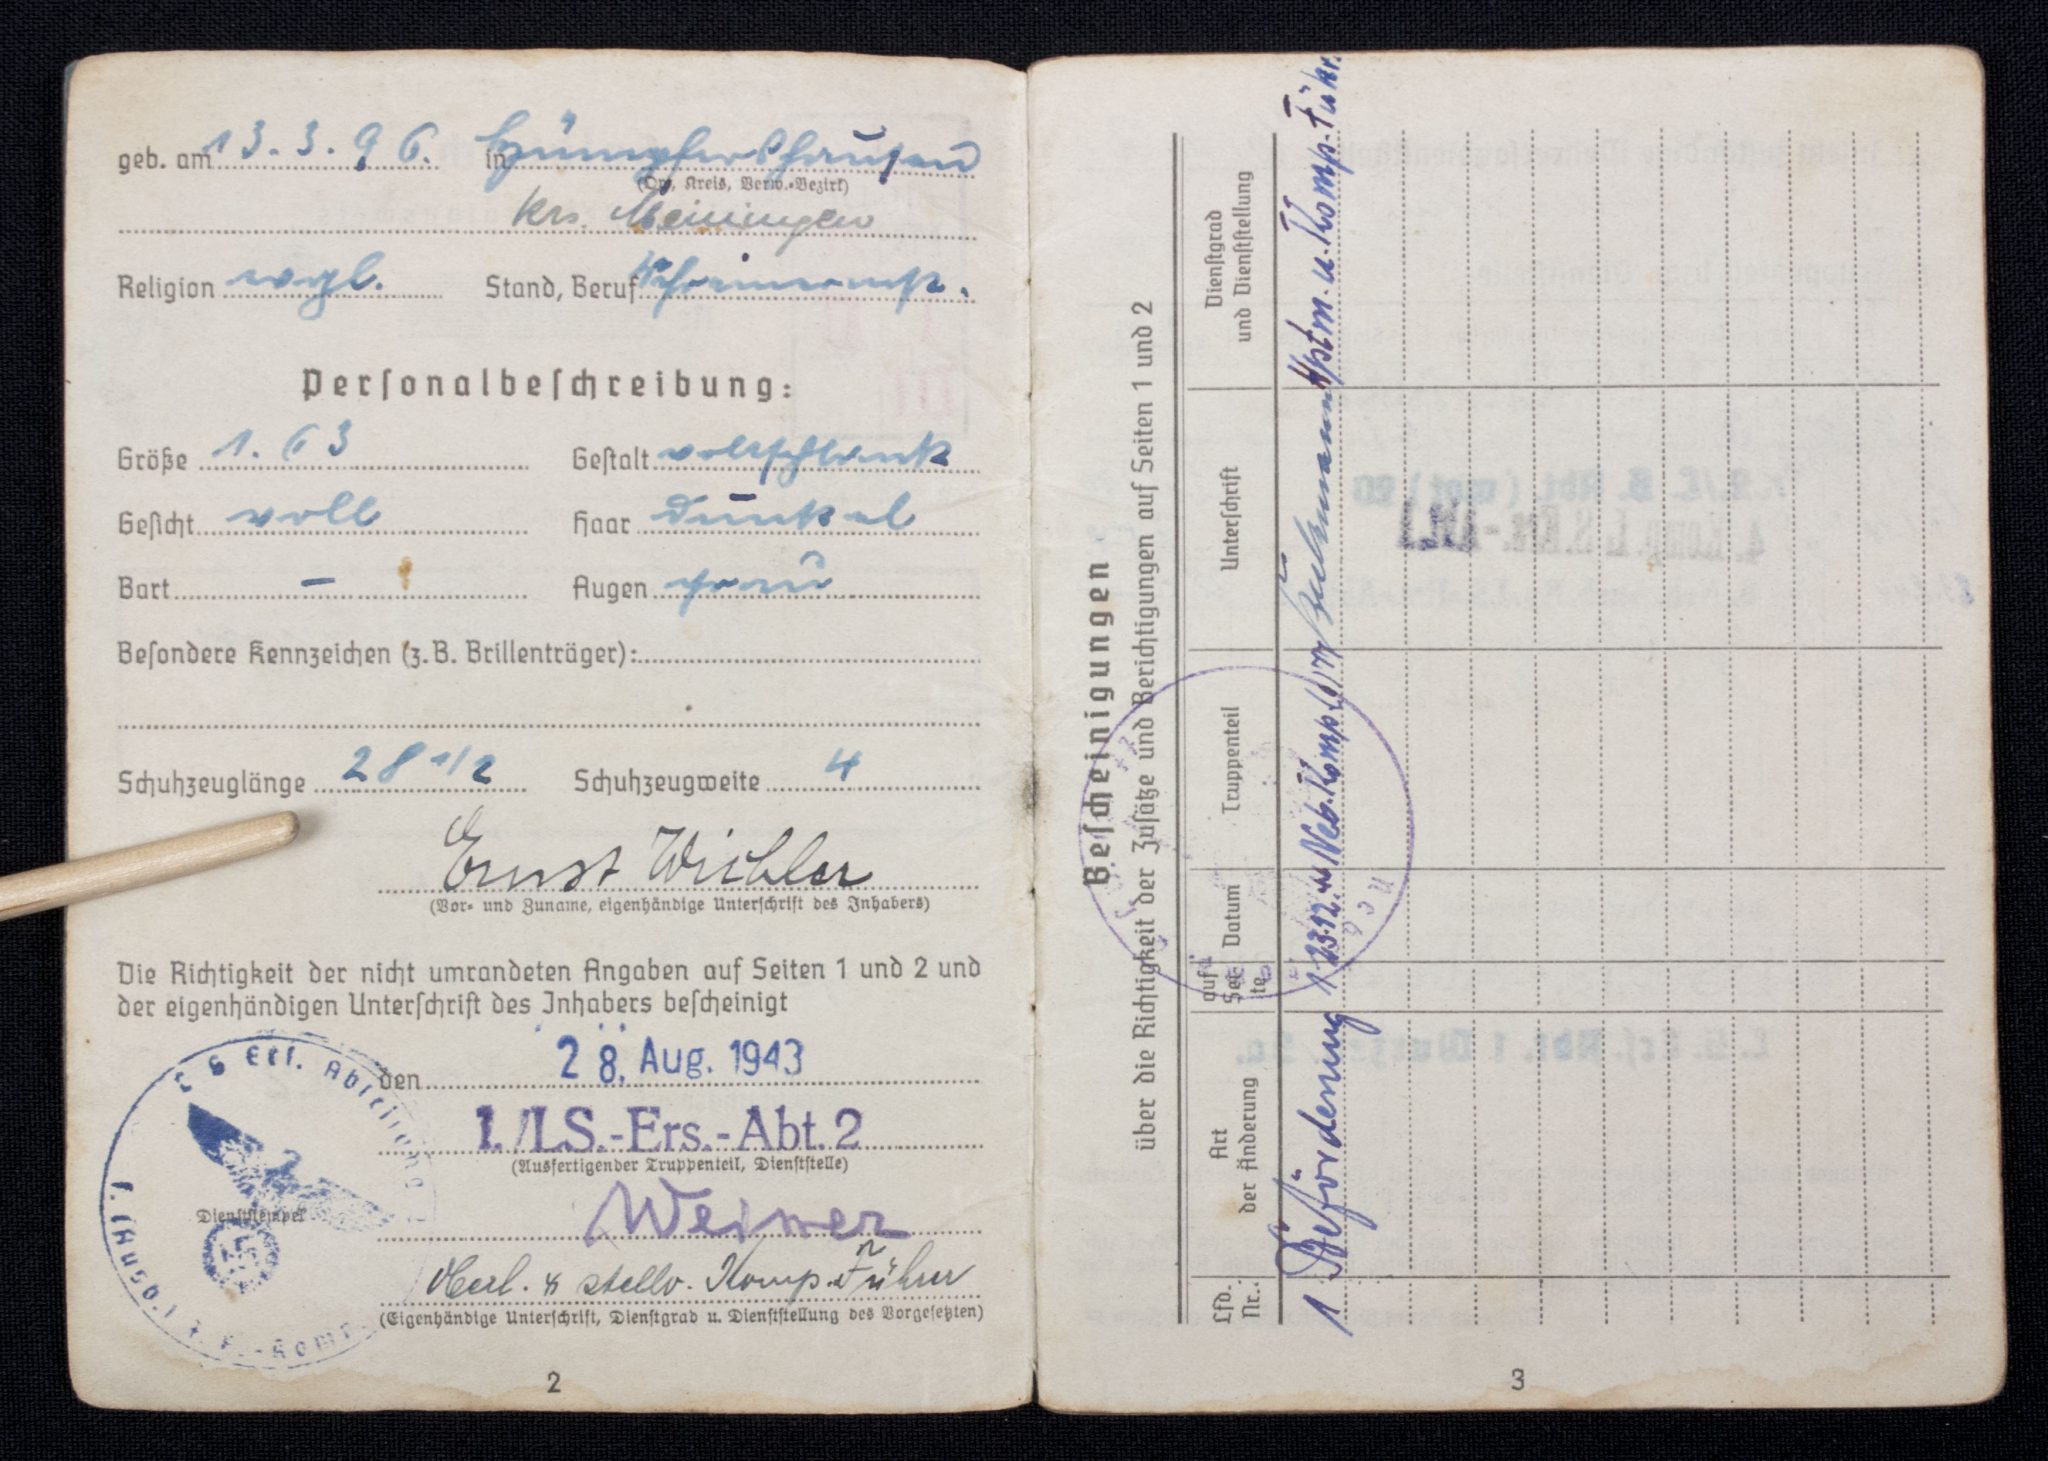 geb. am 13. 3. 96. in Hümpfershausen
(Ort, Kreis, Verw.-Bezirk)
Krs. Meiningen
Religion evgl. Stand, Beruf Schreinermstr.
Personalbeschreibung:
Größe 1.63 Gestalt vollschlank
Gesicht voll Haar dunkel
Bart – Augen grau
Besondere Kennzeichen (z.B. Brillenträger):
Schuhzeuglänge 28 1/2 Schuhzeugweite 4
Ernst Wichler
(Vor- und Zuname, eigenhändige Unterschrift des Inhabers)
Die Richtigkeit der nicht umrandeten Angaben auf Seiten 1 und 2 und
der eigenhändigen Unterschrift des Inhabers bescheinigt
den 28. Aug. 1943
1./LS.-Ers.-Abt. 2
(Ausfertigender Truppenteil, Dienststelle)
Dienststempel
Weimer
stellv. Komp. Führer
(Eigenhändige Unterschrift, Dienstgrad u. Dienststellung des Vorgesetzten)
2
Bescheinigungen
über die Richtigkeit der Zusätze und Berichtigungen auf Seiten 1 und 2
Lfd. Nr.: Art der Änderung auf Seite Datum Truppenteil Unterschrift Dienstgrad und Dienststellung
1 Beförderung 1 23.12. Neb. Komp. Hptm. u. Komp. Führ.
3